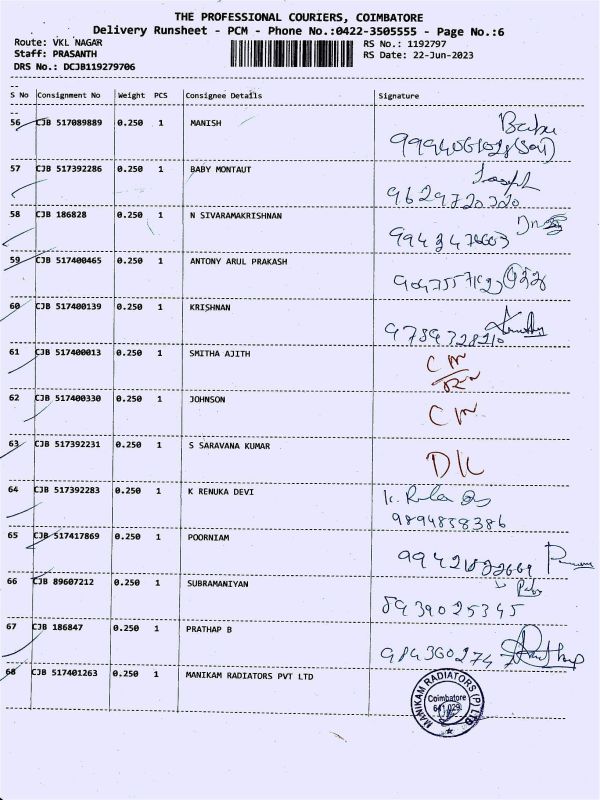 THE PROFESSIONAL COURIERS, COIMBATORE
Delivery Runsheet - PCM - Phone No.:0422-3505555 - Page No.:6
Route: VKL NAGAR
RS No.: 1192797
Staff: PRASANTH
RS Date: 22-Jun-2023
DRS No.: DCJB119279706
S No Consignment No Weight PCS Consignee Details Signature
56 CJB 517089889 0.250 1 MANISH
57 CJB 517392286 0.250 1 BABY MONTAUT
Joseph
9629720320
58 CJB 186828 0.250 1 N SIVARAMAKRISHNAN
59 CJB 517400465 0.250 1 ANTONY ARUL PRAKASH
60 CJB 517400139 0.250 1 KRISHNAN
9789328210
61 CJB 517400013 0.250 1 SMITHA AJITH
62 CJB 517400330 0.250 1 JOHNSON
63 CJB 517392231 0.250 1 S SARAVANA KUMAR
D/L
64 CJB 517392283 0.250 1 K RENUKA DEVI
9894858386
65 CJB 517417869 0.250 1 POORNIAM
66 CJB 89607212 0.250 1 SUBRAMANIYAN
8939025345
67 CJB 186847 0.250 1 PRATHAP B
68 CJB 517401263 0.250 1 MANIKAM RADIATORS PVT LTD
MANIKAM RADIATORS (P) LTD
Coimbatore
641 029